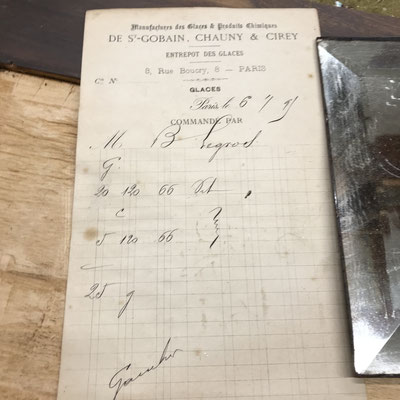 Manufactures des Glaces & Produits Chimiques
DE St-GOBAIN, CHAUNY & CIREY
ENTREPOT DES GLACES
8, Rue Boucry, 8 — PARIS
Ce. N°
GLACES
Paris, le 6 7
COMMANDÉ PAR
M. Bn Legros
G.
20 120 66
C
5 120 66
25 g